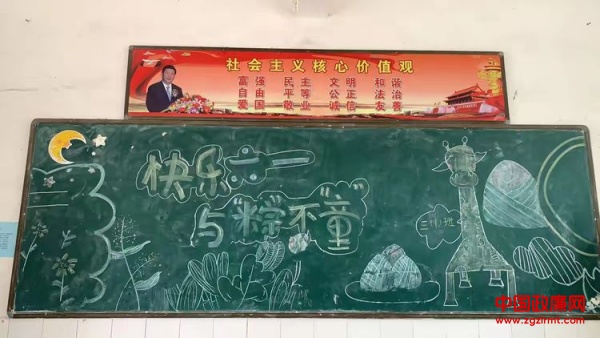 社会主义核心价值观
富强 民主 文明 和谐
自由 平等 公正 法治
爱国 敬业 诚信 友善
快乐六一
与“粽”不“童”
三(1)班
中国政廉网
www.zgzlrmt.com